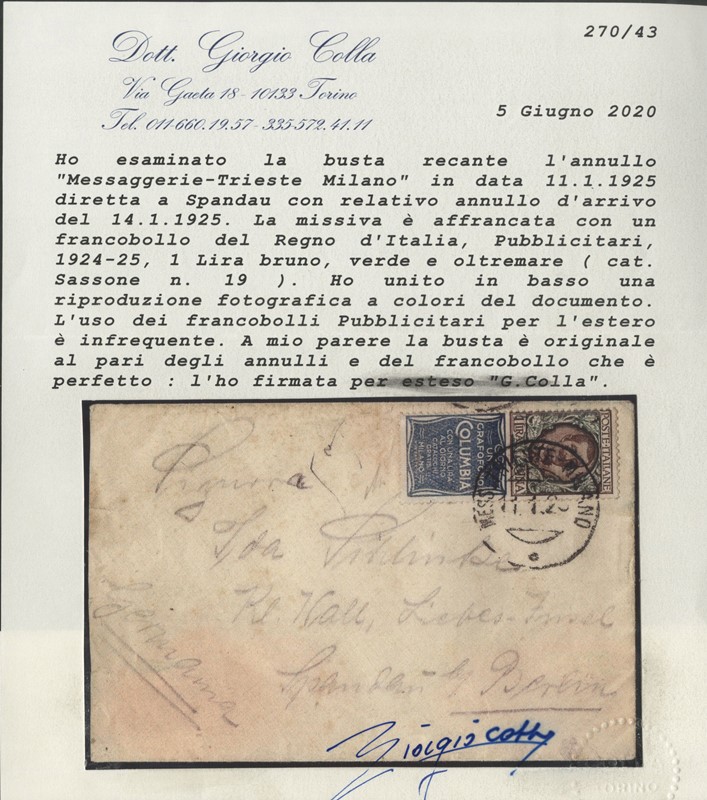 270/43
Dott. Giorgio Colla
Via Gaeta 18 - 10133 Torino
Tel. 011-660.19.57 - 335-572.41.11
5 Giugno 2020
Ho esaminato la busta recante l'annullo
"Messaggerie-Trieste Milano" in data 11.1.1925
diretta a Spandau con relativo annullo d'arrivo
del 14.1.1925. La missiva è affrancata con un
francobollo del Regno d'Italia, Pubblicitari,
1924-25, 1 Lira bruno, verde e oltremare ( cat.
Sassone n. 19 ). Ho unito in basso una
riproduzione fotografica a colori del documento.
L'uso dei francobolli Pubblicitari per l'estero
è infrequente. A mio parere la busta è originale
al pari degli annulli e del francobollo che è
perfetto : l'ho firmata per esteso "G.Colla".
UN
GRAFOFONO
COLUMBIA
CON UNA LIRA
AL GIORNO
MILANO
POSTE ITALIANE
LIRA UNA
MILANO
Signora
Ida
Kl. Wall, Liebes-Insel
Spandau b/ Berlin
Germania
Giorgio Colla
TORINO